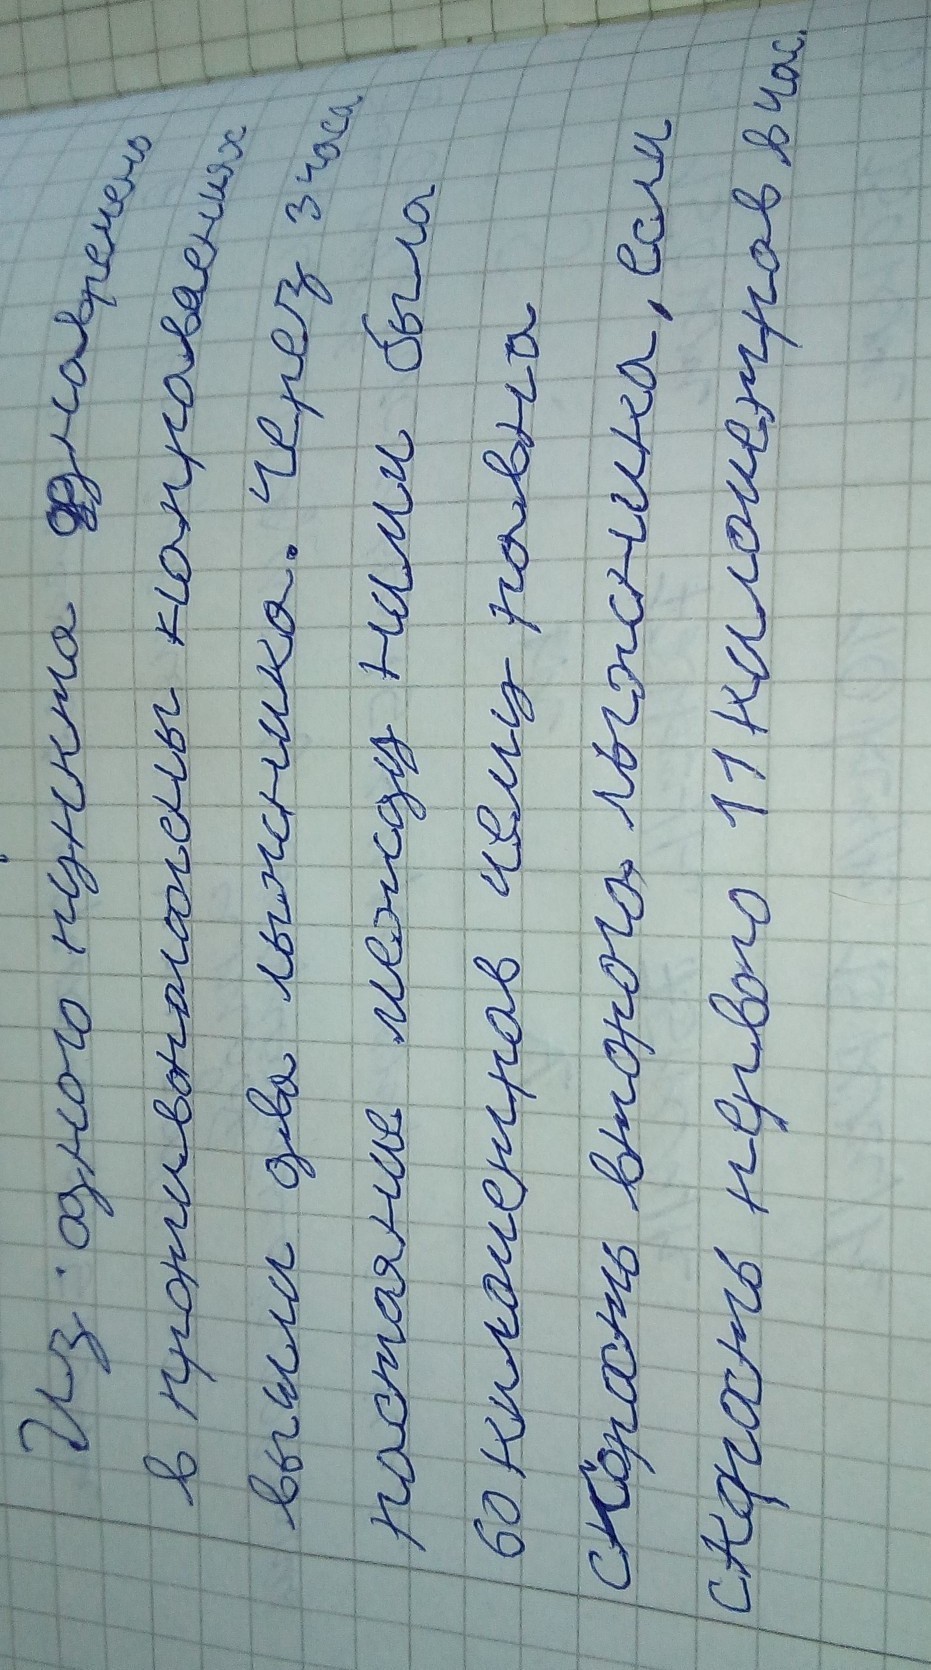 Из одного пункта одновремено
в противоположены направлениях
вышли два лыжника. Через 3 часа
растаяние между ними была
60 километров чему равна
скорать второго лыжника, если
скорать первого 11 километров в час.